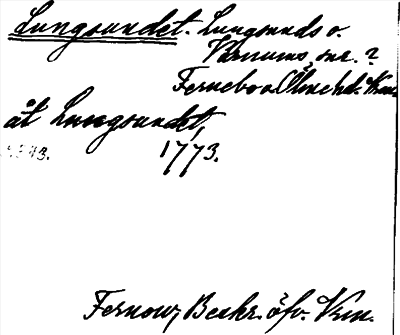 Lungsundet. Lungsunds o.
Värnums snr.?
Fernebo o. Ölmehd. Vrm.
åt Lungsundet,
1773.
Fernow, Beskr. öfv. Vrm.